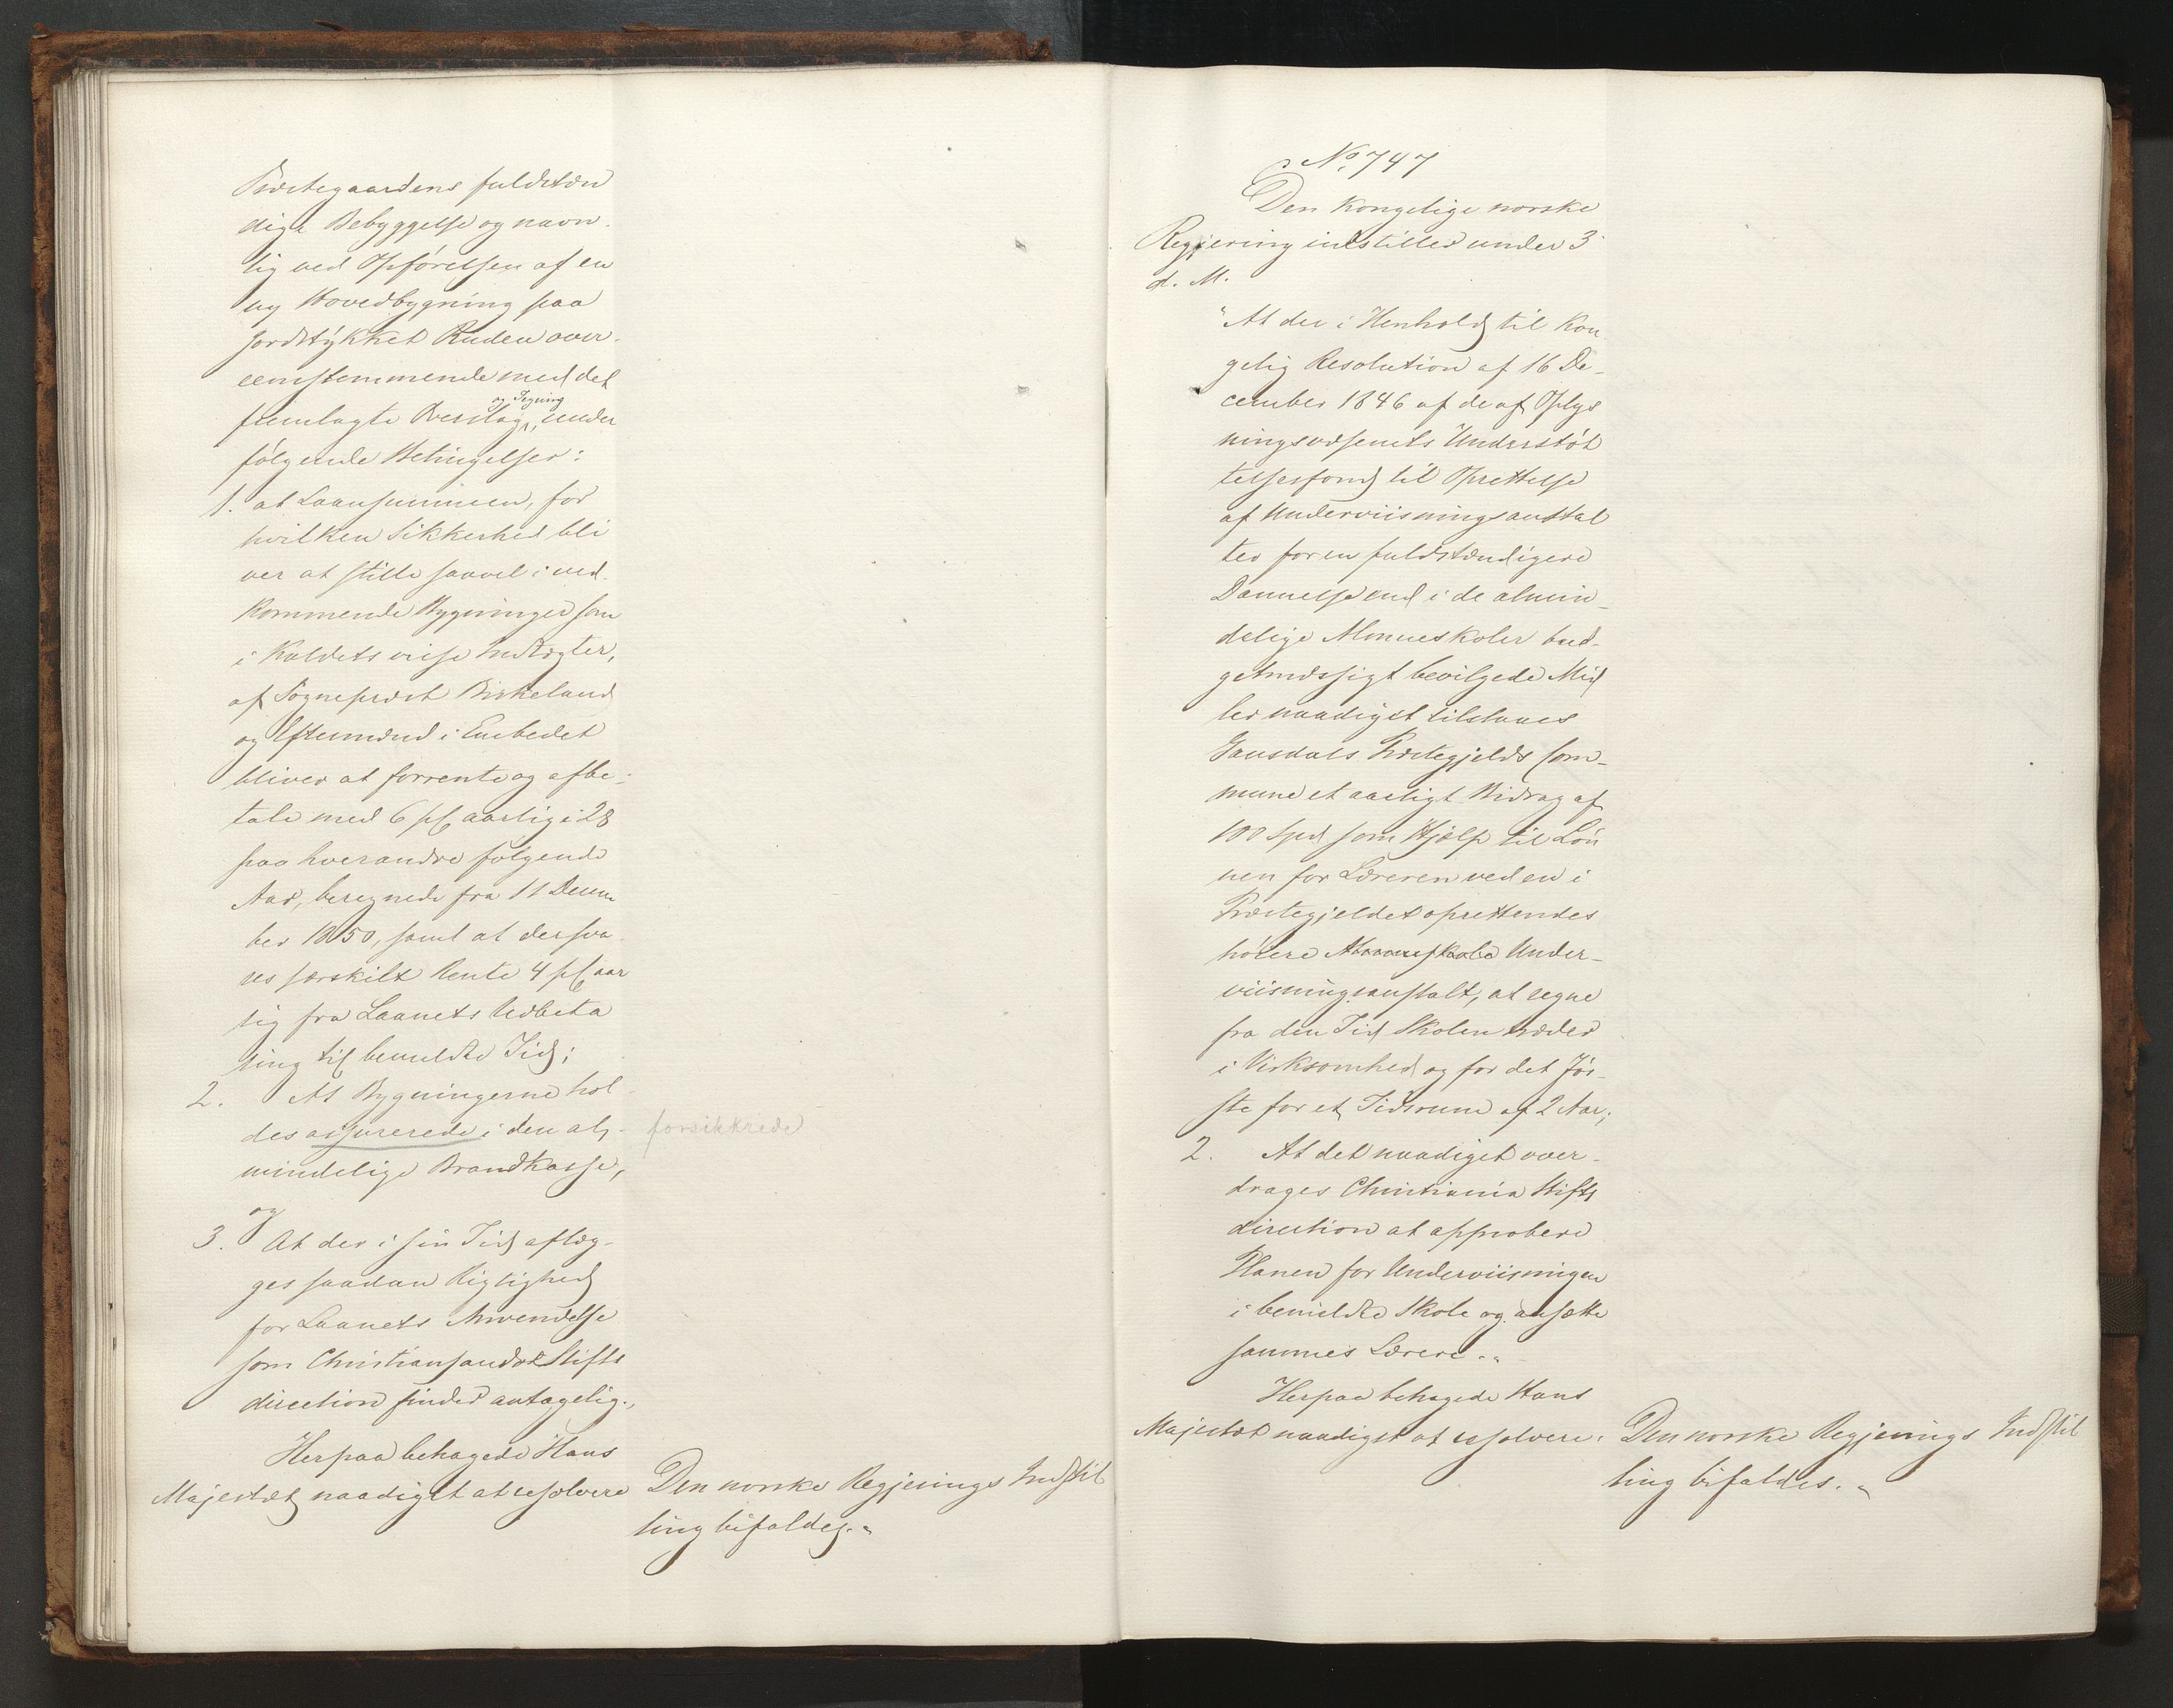 Præstegaardens fuldstæn
dige Bebyggelse og navn-
lig ved Opførelsen af en
ny Hovedbygning paa
Jordstykket Ruden over-
eensstemmende med det
og Tegning
fremlagte Overslag, under
følgende Betingelser:
1. at Laansummen, for
hvilken Sikkerhed bli
ver at stille saavel i ved-
kommende Bygninger som
i Kaldets visse Indtægter,
af Sognepræst Birkeland
og Eftermænd i Embedet
bliver at forrente og afbe-
tale med 6 pC aarlig i 28
paa hverandre følgende
Aar, beregnede fra 11 Decem
ber 1850, samt at der sva
res særskilt Rente 4 pC aar
lig fra Laanets Udbeta
ling til bemeldte Tid;
2. At Bygningerne hol-
des assurerede i den al-
forsikkrede
mindelige Brandkasse,
og
3. At der i sin Tid aflæg-
ges saadan Rigtighed
for Laanets Anvendelse
som Christiansands Stifts
direction finder antagelig.„
Herpaa behagede Hans
Majestæt naadigst at resolvere
Den norske Regjerings Indstil
ling bifaldes.„
No 747
Den Kongelige norske
Regjering indstiller under 3
d. M.
"At der i Henhold til Kon
gelig Resolution af 16 De-
cember 1846 af de af Oplys
ningsvæsenets Understøt
telsesfond til Oprettelse
af Underviisningsanstal
ter for en fuldstændigere
Dannelse end i de almin-
delige Almueskoler bud-
getmæssigt bevilgede Mid
ler naadigst tilstaaes
Gausdals Præstegjelds Com-
mune et aarligt Bidrag af
100 Spd som Hjælp til Løn
nen for Læreren ved en i
Præstegjeldet oprettendes
høiere Almueskole Under-
viisningsanstalt, at regne
fra den Tid Skolen træder
i Virksomhed og for det Før-
ste for et Tidsrum af 2 Aar;
2. At det naadigst over-
drages Christiania Stifts
direction at approbere
Planen for Underviisningen
i bemeldte Skole og ansætte
sammes Lærere.„
Herpaa behagede Hans
Majestæt naadigst at resolvere:
Den norske Regjerings Indstil
ling bifaldes.„